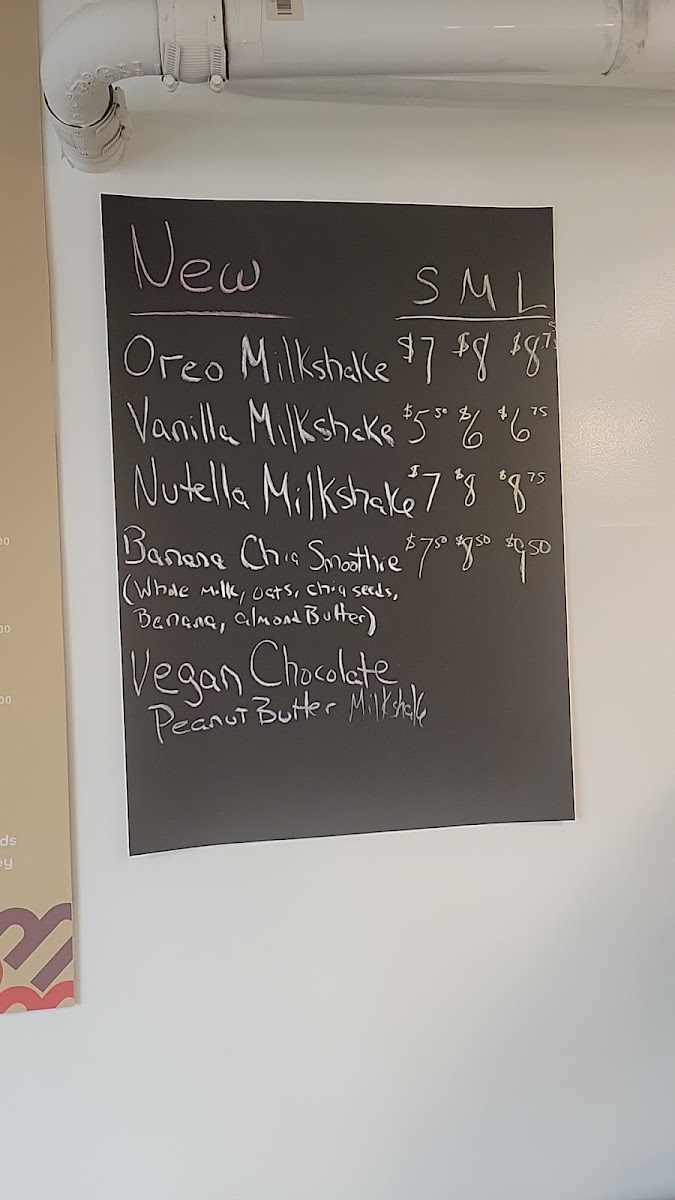 New S M L
Oreo Milkshake $7 $8 $8 75
Vanilla Milkshake $5 50 $6 $6 75
Nutella Milkshake $7 $8 $8 75
Banana Chia Smoothie $7 50 $8 50 $9 50
(Whole Milk, oats, chia seeds,
Banana, almond Butter)
Vegan Chocolate
Peanut Butter Milkshake